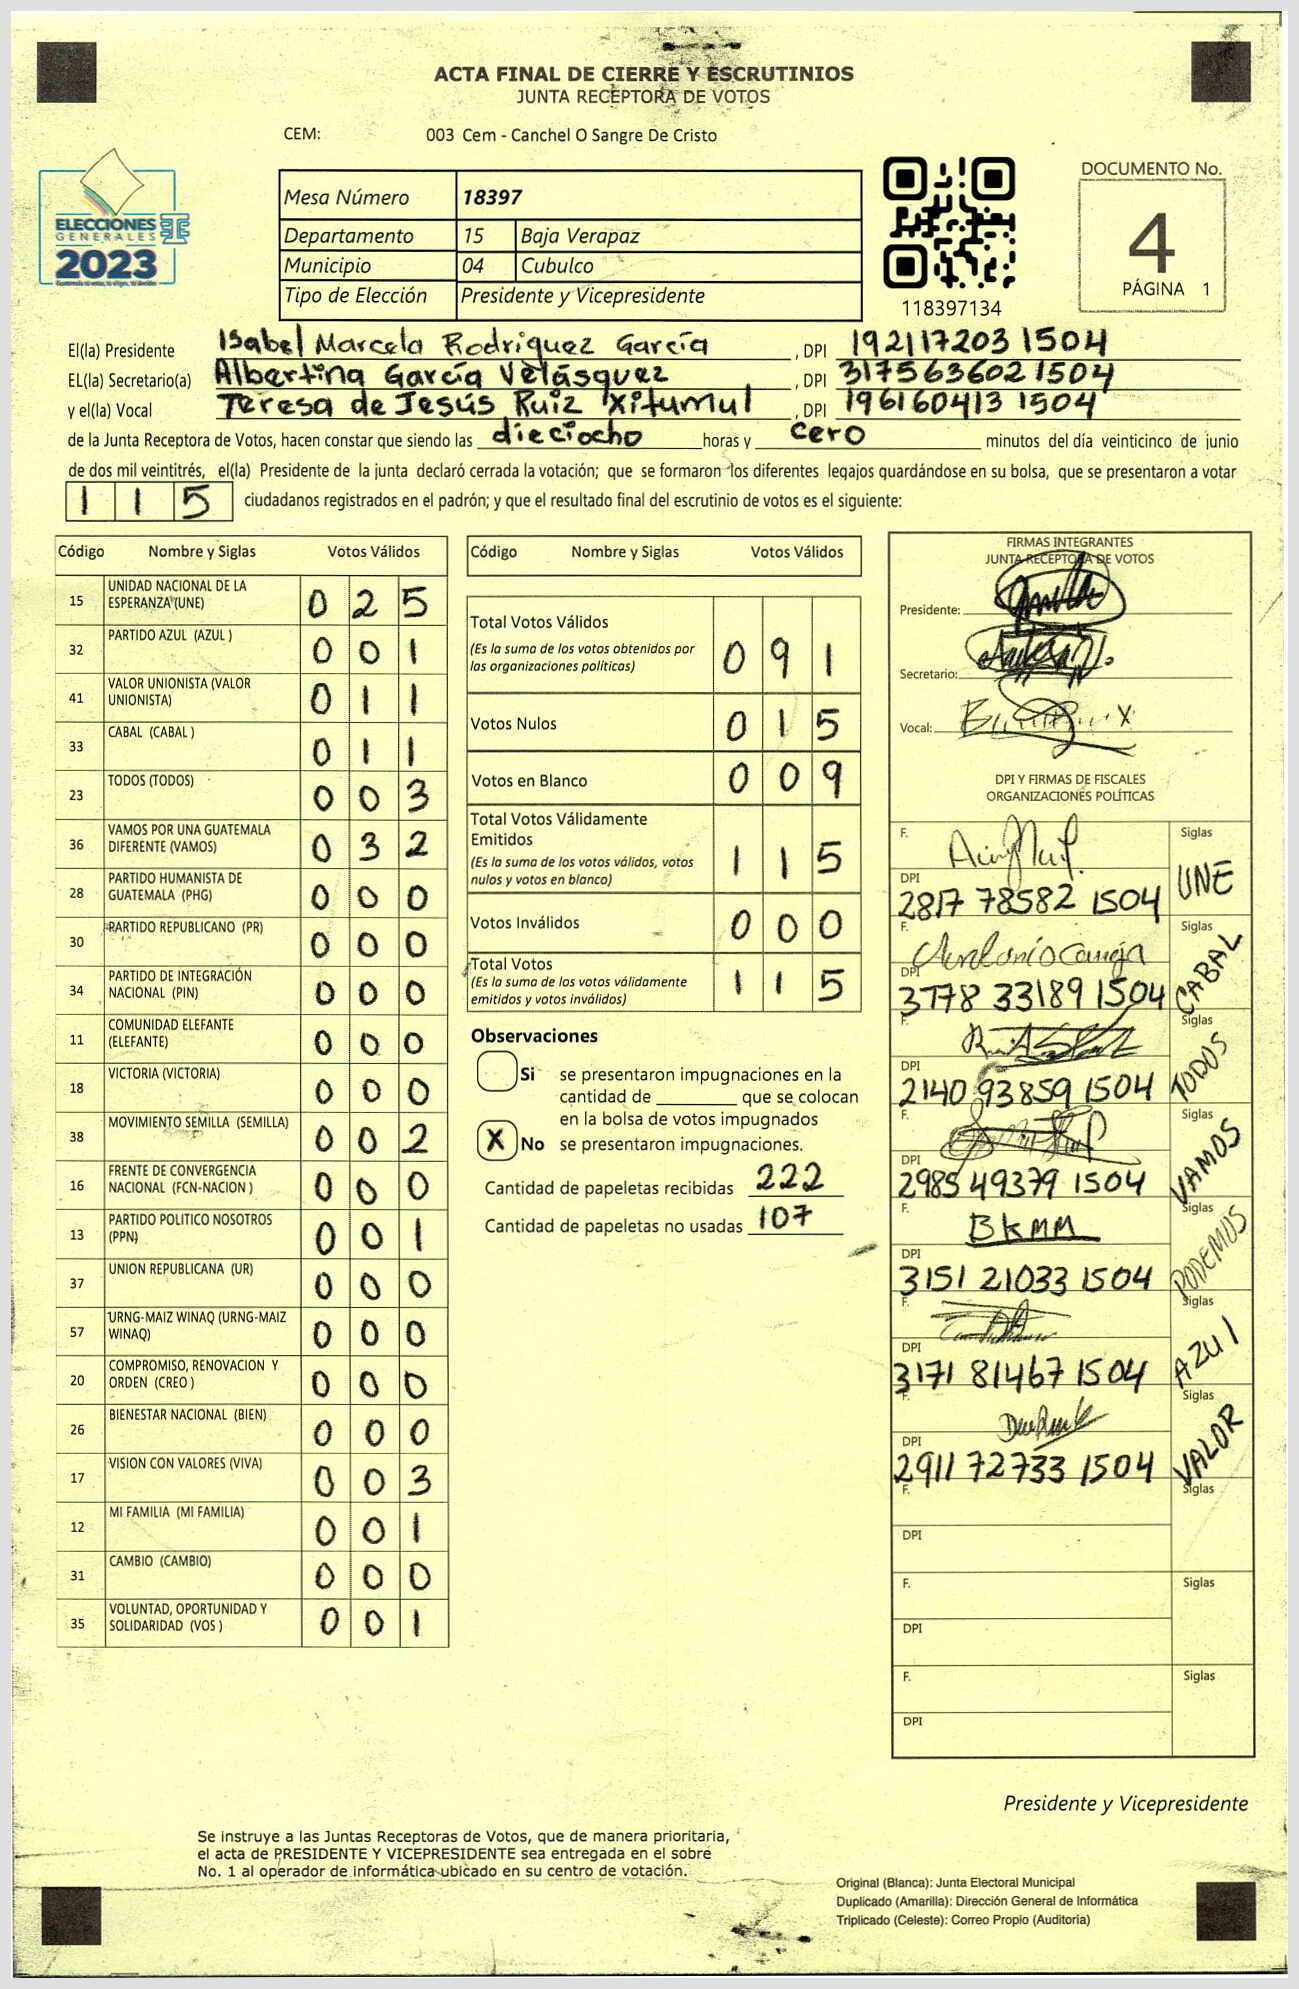 ACTA FINAL DE CIERRE Y ESCRUTINIOS
JUNTA RECEPTORA DE VOTOS
CEM: 003 Cem - Canchel O Sangre De Cristo
ELECCIONES
GENERALES
2023
Mesa Número 18397
Departamento 15 Baja Verapaz
Municipio 04 Cubulco
Tipo de Elección Presidente y Vicepresidente
118397134
DOCUMENTO No.
4
PÁGINA 1
El(la) Presidente Isabel Marcela Rodriguez García , DPI 192117203 1504
EL(la) Secretario(a) Albertina García Velásquez , DPI 317563602 1504
y el(la) Vocal Teresa de Jesús Ruiz Xitumul , DPI 196160413 1504
de la Junta Receptora de Votos, hacen constar que siendo las dieciocho horas y cero minutos del día veinticinco de junio
de dos mil veintitrés, el(la) Presidente de la junta declaró cerrada la votación; que se formaron los diferentes legajos quardándose en su bolsa, que se presentaron a votar
1 1 5 ciudadanos registrados en el padrón; y que el resultado final del escrutinio de votos es el siguiente:
Código Nombre y Siglas Votos Válidos
15 UNIDAD NACIONAL DE LA ESPERANZA (UNE) 0 2 5
32 PARTIDO AZUL (AZUL ) 0 0 1
41 VALOR UNIONISTA (VALOR UNIONISTA) 0 1 1
33 CABAL (CABAL ) 0 1 1
23 TODOS (TODOS) 0 0 3
36 VAMOS POR UNA GUATEMALA DIFERENTE (VAMOS) 0 3 2
28 PARTIDO HUMANISTA DE GUATEMALA (PHG) 0 0 0
30 PARTIDO REPUBLICANO (PR) 0 0 0
34 PARTIDO DE INTEGRACIÓN NACIONAL (PIN) 0 0 0
11 COMUNIDAD ELEFANTE (ELEFANTE) 0 0 0
18 VICTORIA (VICTORIA) 0 0 0
38 MOVIMIENTO SEMILLA (SEMILLA) 0 0 2
16 FRENTE DE CONVERGENCIA NACIONAL (FCN-NACION ) 0 0 0
13 PARTIDO POLITICO NOSOTROS (PPN) 0 0 1
37 UNION REPUBLICANA (UR) 0 0 0
57 URNG-MAIZ WINAQ (URNG-MAIZ WINAQ) 0 0 0
20 COMPROMISO, RENOVACION Y ORDEN (CREO ) 0 0 0
26 BIENESTAR NACIONAL (BIEN) 0 0 0
17 VISION CON VALORES (VIVA) 0 0 3
12 MI FAMILIA (MI FAMILIA) 0 0 1
31 CAMBIO (CAMBIO) 0 0 0
35 VOLUNTAD, OPORTUNIDAD Y SOLIDARIDAD (VOS ) 0 0 1
Código Nombre y Siglas Votos Válidos
Total Votos Válidos 0 9 1
(Es la suma de los votos obtenidos por
las organizaciones políticas)
Votos Nulos 0 1 5
Votos en Blanco 0 0 9
Total Votos Válidamente
Emitidos 1 1 5
(Es la suma de los votos válidos, votos
nulos y votos en blanco)
Votos Inválidos 0 0 0
Total Votos 1 1 5
(Es la suma de los votos válidamente
emitidos y votos inválidos)
Observaciones
Si se presentaron impugnaciones en la
cantidad de ________ que se colocan
en la bolsa de votos impugnados
X No se presentaron impugnaciones.
Cantidad de papeletas recibidas 222
Cantidad de papeletas no usadas 107
FIRMAS INTEGRANTES
JUNTA RECEPTORA DE VOTOS
Presidente:
Secretario:
Vocal:
DPI Y FIRMAS DE FISCALES
ORGANIZACIONES POLÍTICAS
F. Siglas
DPI 2817 78582 1504 UNE
F. Siglas
DPI 3778 33189 1504 CABAL
F. Siglas
DPI 2140 93859 1504 TODOS
F. Siglas
DPI 2985 49379 1504 VAMOS
F. BKMM Siglas
DPI 3151 21033 1504 PODEMOS
F. Siglas
DPI 3171 81467 1504 AZUl
F. Siglas
DPI 2911 72733 1504 VALOR
F. Siglas
DPI
F. Siglas
DPI
F. Siglas
DPI
Presidente y Vicepresidente
Se instruye a las Juntas Receptoras de Votos, que de manera prioritaria,
el acta de PRESIDENTE Y VICEPRESIDENTE sea entregada en el sobre
No. 1 al operador de informática ubicado en su centro de votación.
Original (Blanca): Junta Electoral Municipal
Duplicado (Amarilla): Dirección General de Informática
Triplicado (Celeste): Correo Propio (Auditoría)